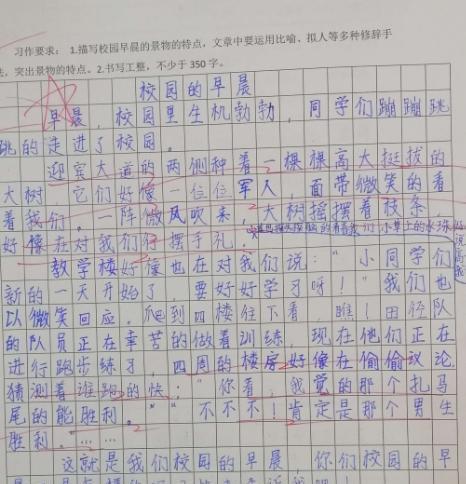 习作要求：1.描写校园早晨的景物的特点，文章中要运用比喻、拟人等多种修辞手
法，突出景物的特点。2.书写工整，不少于350字。
校园的早晨
早晨，校园里生机勃勃，同学们蹦蹦跳
跳的走进了校园。
迎宾大道的两侧种着一棵棵高大挺拔的
大树，它们好像一位位军人，面带微笑的看
着我们。一阵微风吹来，大树摇摆着枝条
好像在对我们行摆手礼。
教学楼好像也在对我们说：“小同学们
新的一天开始了，要好好学习呀！”我们也
以微笑回应。爬到四楼往下看，瞧！田径队
的队员正在辛苦的做着训练，现在他们正在
进行跑步练习，四周的楼房好像在偷偷议论
猜测着谁跑的快：“你看，我觉的那个扎马
尾的能胜利。”“不不不！肯定是那个男生
胜利。”……
这就是我们校园的早晨，你们校园的早